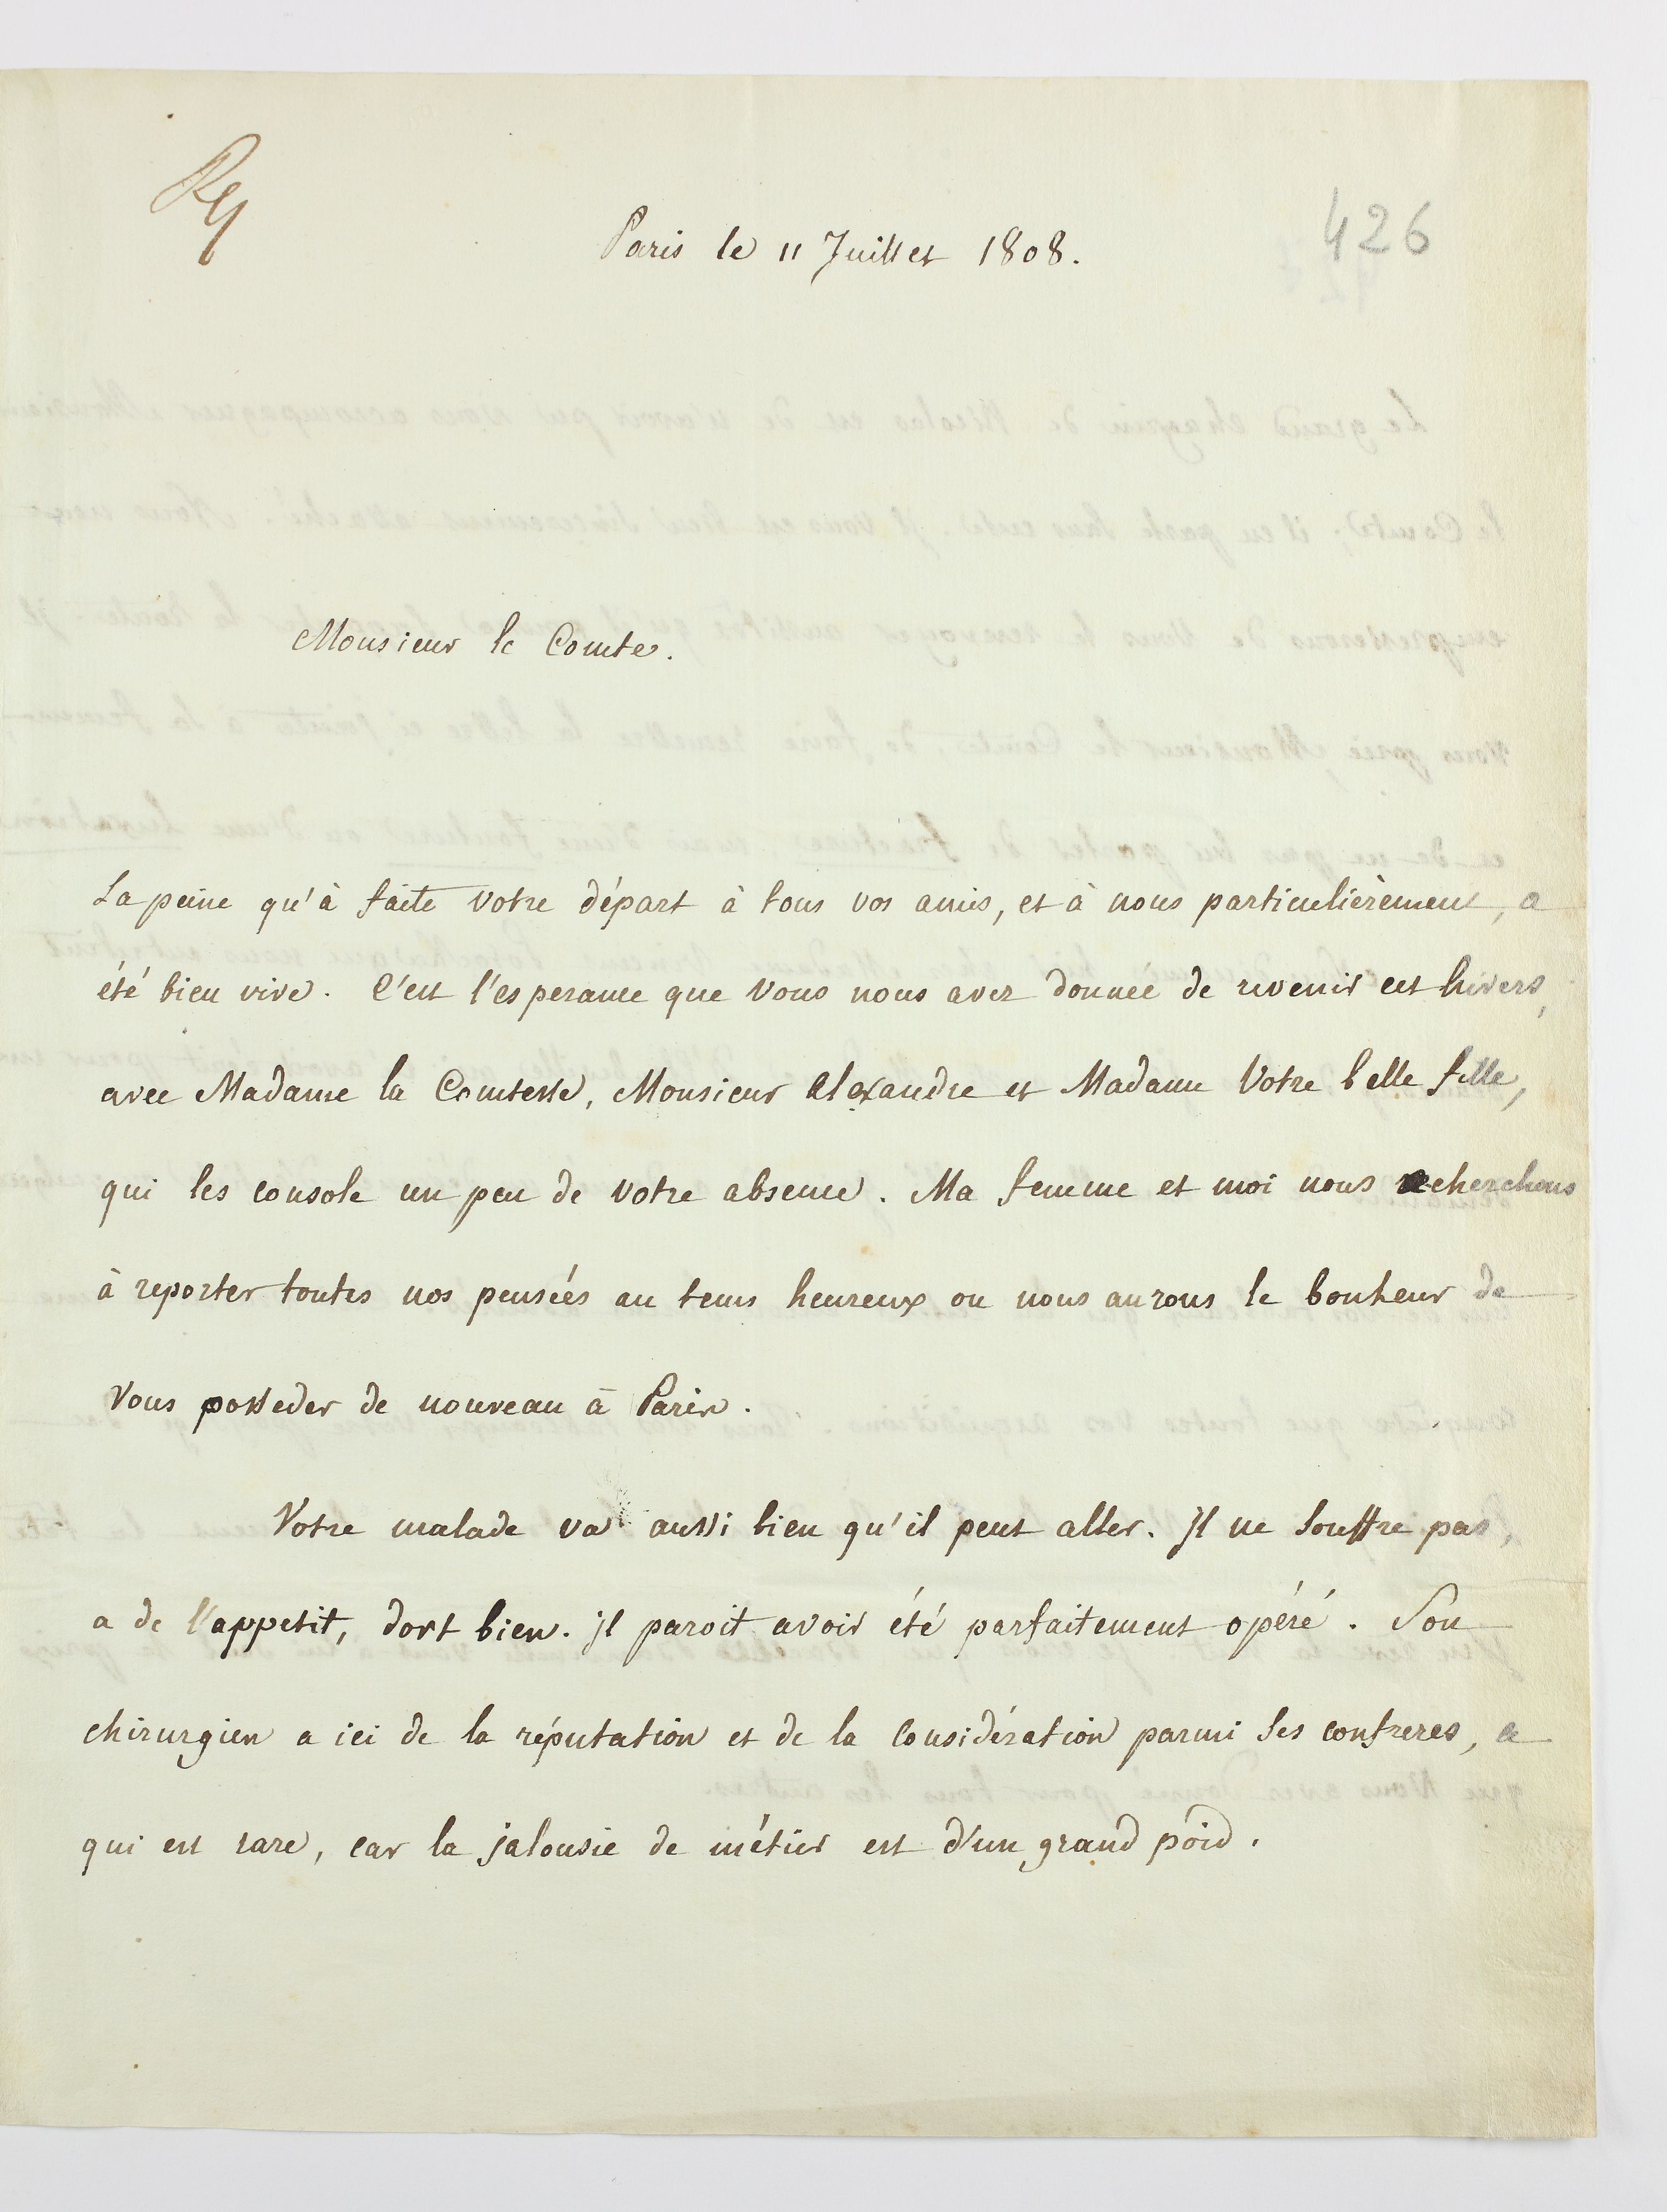 426
Paris le 11 Juillet 1808.
Monsieur le Comte.
La peine qu'à faite votre départ à tous vos amis, et à nous particulièrement, a
été bien vive. C'est l'esperance que vous nous avez donnée de revenir cet hivers,
avec Madame la Comtesse, Monsieur Alexandre et Madame Votre belle fille,
qui les console un peu de votre absence. Ma femme et moi nous recherchons
à reporter toutes nos pensées au tems heureux ou nous aurons le bonheur de
vous posseder de nouveau à Paris.
Votre malade va aussi bien qu'il peut aller. Il ne souffre pas,
a de l'appetit, dort bien. Il paroit avoir été parfaitement opéré. Son
chirurgien a ici de la réputation et de la considération parmi ses confreres, ce
qui est rare, car la jalousie de métier est d'un grand poid.